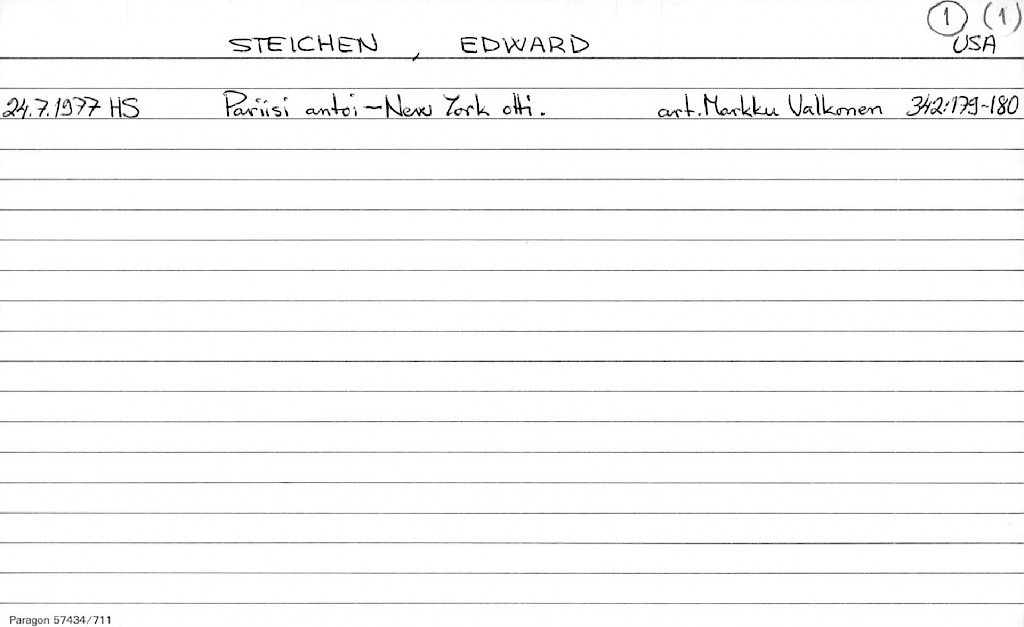 ① (1)
STEICHEN, EDWARD USA
24.7.1977 HS Pariisi antoi – New York otti. art. Markku Valkonen 342:179-180
Paragon 57434/711